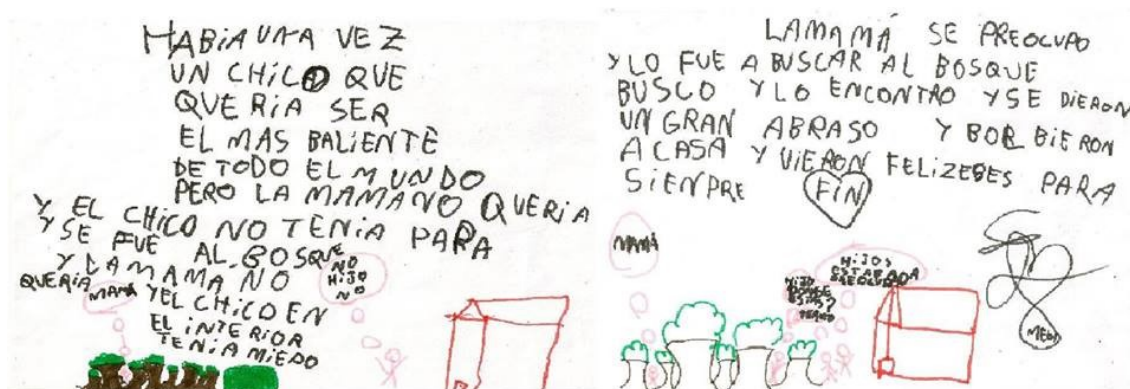 HABIA UNA VEZ
UN CHICO QUE
QUERIA SER
EL MAS BALIENTE
DE TODO EL MUNDO
PERO LA MAMA NO QUERIA
Y EL CHICO NO TENIA PARA
Y SE FUE AL BOSQUE
Y LA MAMA NO
QUERIA
Y EL CHICO EN
EL INTERIOR
TENIA MIEDO
MAMA
NO
HIJO
NO
LA MAMÁ SE PREOCUPO
Y LO FUE A BUSCAR AL BOSQUE
BUSCO Y LO ENCONTRO Y SE DIERON
UN GRAN ABRASO Y BORBIERON
A CASA Y VIERON FELIZESES PARA
SIENPRE
FIN
MAMÁ
HIJO
DONDE
ESTAS?
HIJO,
ESTABA